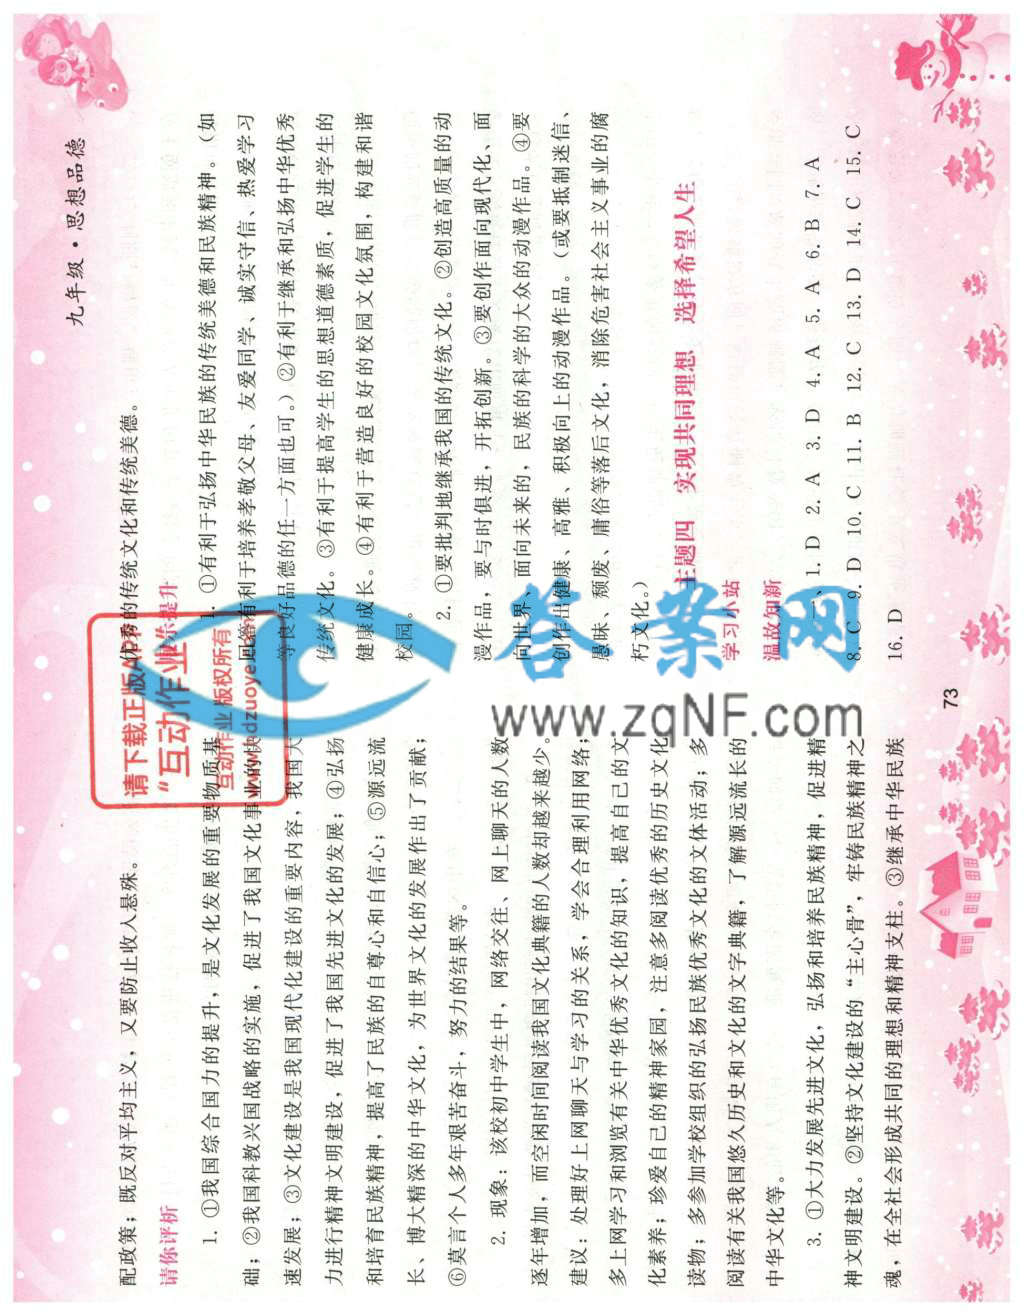 九年级·思想品德
配政策；既反对平均主义，又要防止收入悬殊。
请你评析
1. ①我国综合国力的提升，是文化发展的重要物质基
础；②我国科教兴国战略的实施，促进了我国文化事业的快
速发展；③文化建设是我国现代化建设的重要内容，我国大
力进行精神文明建设，促进了我国先进文化的发展；④弘扬
和培育民族精神，提高了民族的自尊心和自信心；⑤源远流
长、博大精深的中华文化，为世界文化的发展作出了贡献；
⑥莫言个人多年艰苦奋斗，努力的结果等。
2. 现象：该校初中学生中，网络交往、网上聊天的人数
逐年增加，而空闲时间阅读我国文化典籍的人数却越来越少。
建议：处理好上网聊天与学习的关系，学会合理利用网络；
多上网学习和浏览有关中华优秀文化的知识，提高自己的文
化素养；珍爱自己的精神家园，注意多阅读优秀的历史文化
读物；多参加学校组织的弘扬民族优秀文化的文体活动；多
阅读有关我国悠久历史和文化的文字典籍，了解源远流长的
中华文化等。
3. ①大力发展先进文化，弘扬和培养民族精神，促进精
神文明建设。②坚持文化建设的“主心骨”，牢铸民族精神之
魂，在全社会形成共同的理想和精神支柱。③继承中华民族
优秀的传统文化和传统美德。
提升
1. ①有利于弘扬中华民族的传统美德和民族精神。（如
有利于培养孝敬父母、友爱同学、诚实守信、热爱学习
等良好品德的任一方面也可。）②有利于继承和弘扬中华优秀
传统文化。③有利于提高学生的思想道德素质，促进学生的
健康成长。④有利于营造良好的校园文化氛围，构建和谐
校园。
2. ①要批判地继承我国的传统文化。②创造高质量的动
漫作品，要与时俱进，开拓创新。③要创作面向现代化、面
向世界、面向未来的，民族的科学的大众的动漫作品。④要
创作出健康、高雅、积极向上的动漫作品。（或要抵制迷信、
愚昧、颓废、庸俗等落后文化，消除危害社会主义事业的腐
朽文化。）
主题四 实现共同理想 选择希望人生
学习小站
温故知新
一、1. D 2. A 3. D 4. A 5. A 6. B 7. A
8. C 9. D 10. C 11. B 12. C 13. D 14. C 15. C
16. D
73
请下载正版APP
“互动作业”
互动作业 版权所有
答案网
www.zqNF.com